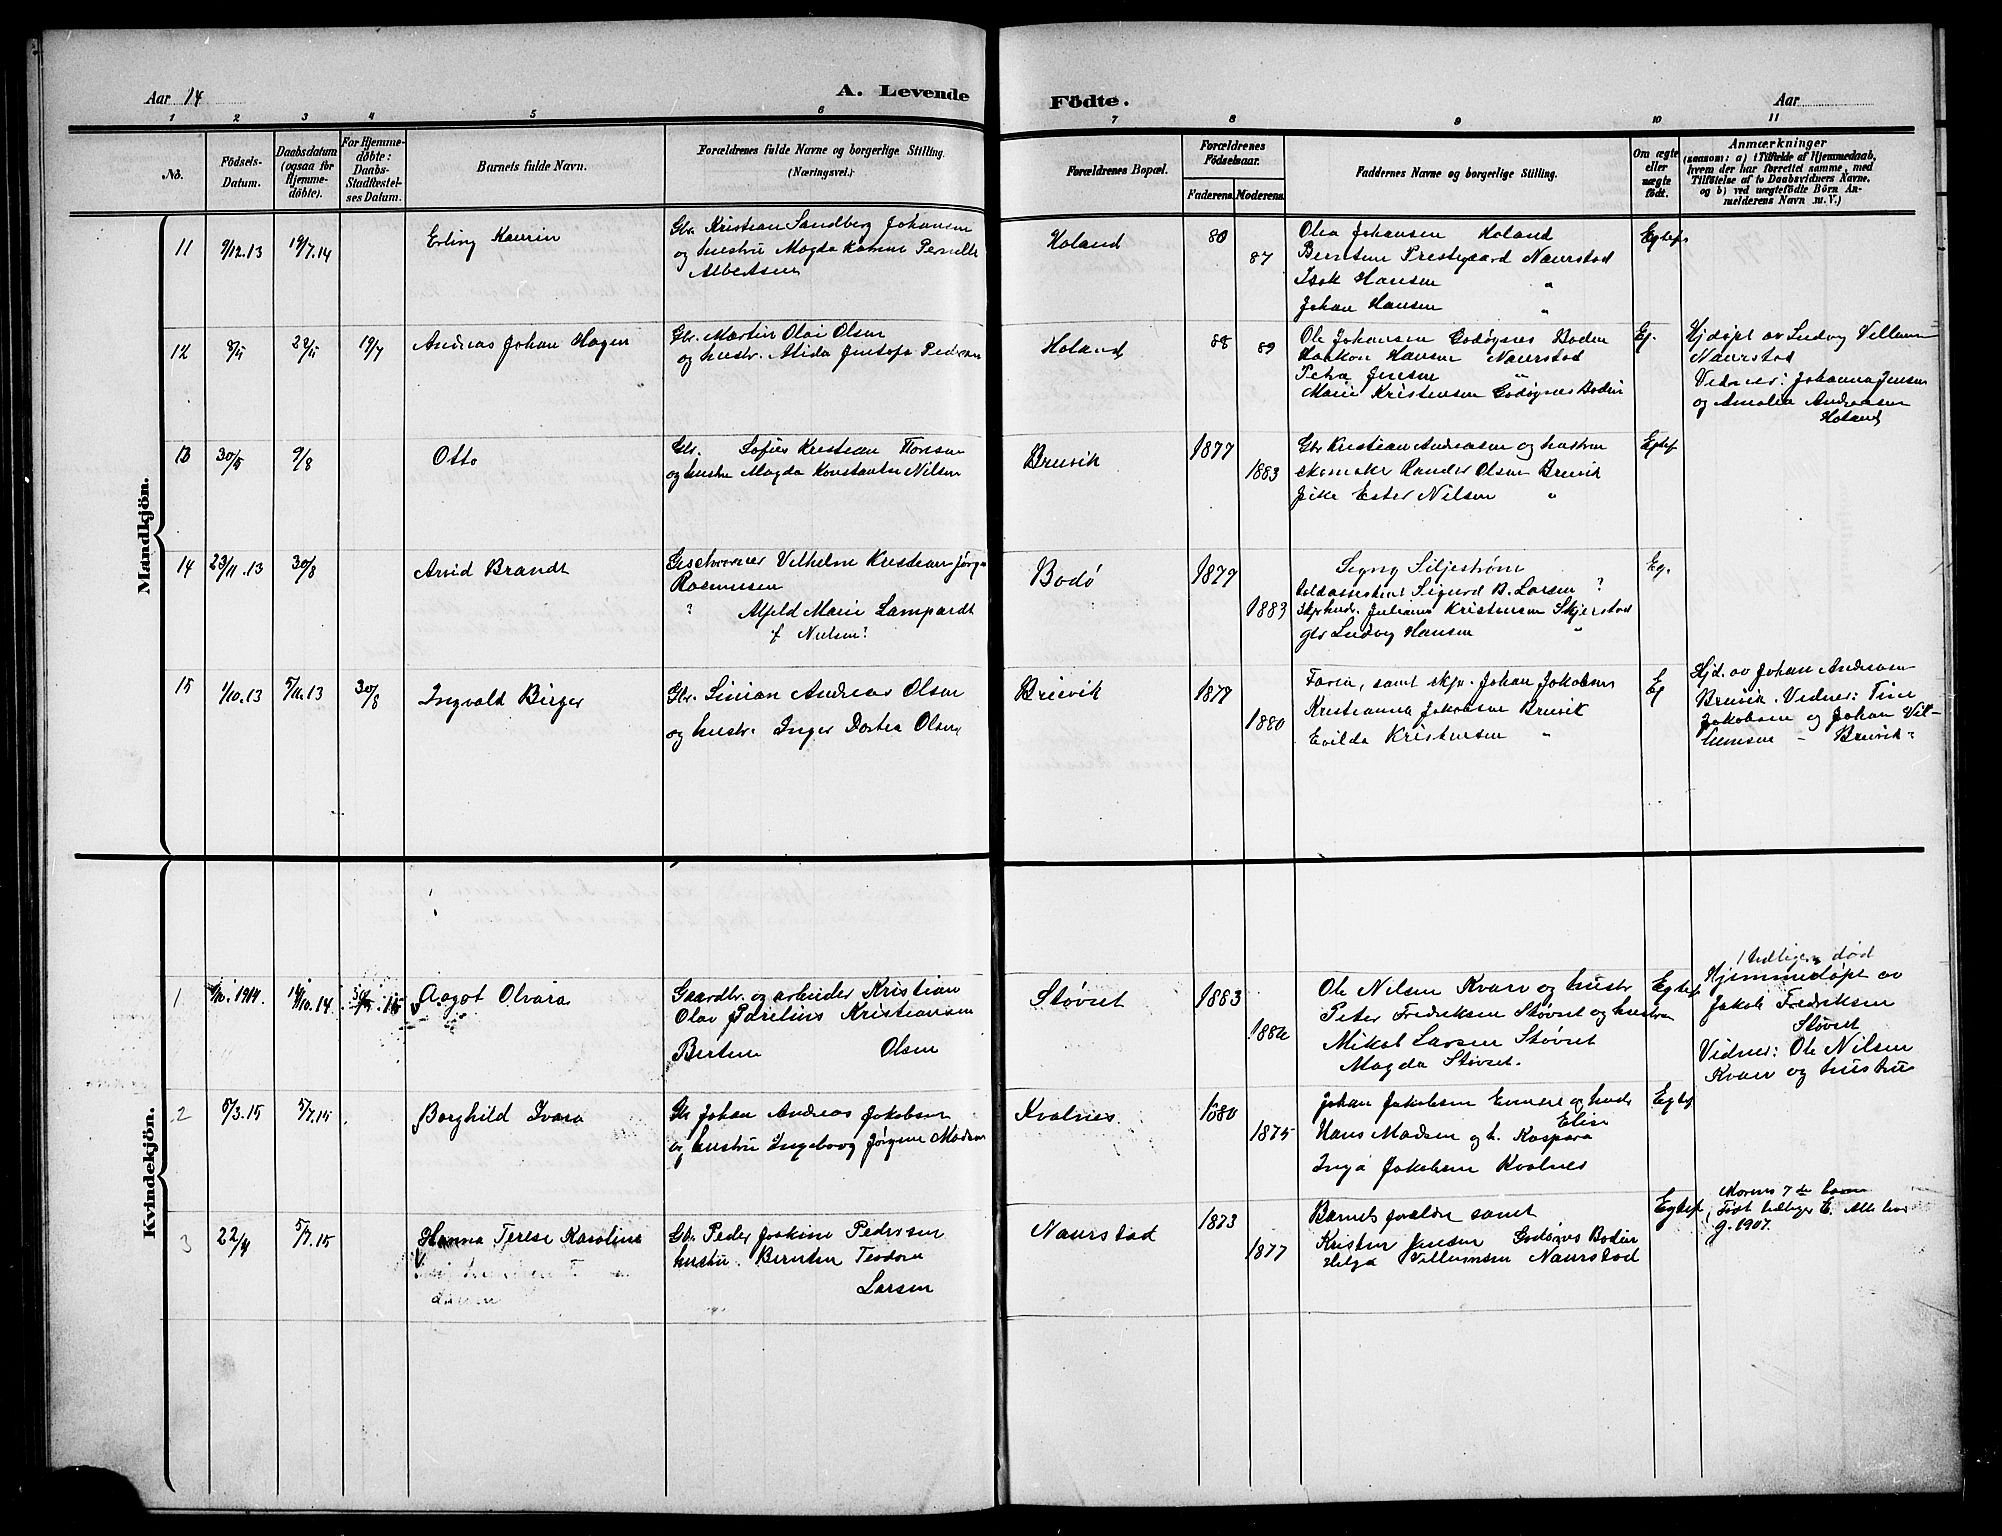 Aar 14
A. Levende
Födte.
Aar
1 2 3 4 5 6 7 8 9 10 11
No.
Födsels-
Datum.
Daabsdatum
(ogsaa for
Hjemme-
döbte).
For Hjemme-
döbte:
Daabs-
Stadfæstel-
ses Datum.
Barnets fulde Navn.
Forældrenes fulde Navne og borgerlige Stilling.
(Næringsvei.)
Forældrenes Bopæl.
Forældrenes
Födselsaar.
Faderens. Moderens.
Faddernes Navne og borgerlige Stilling.
Om ægte
eller
uægte
født.
Anmærkninger
(saasom: a) i Tilfælde af Hjemmedaab,
hvem der har forrettet samme, med
Tilföielse af to Daabsvidners Navne,
og b) ved uægtefödte Börn An-
melderens Navn m. V.)
Mandkjön.
11
9/12.13
19/7.14
Erling Kaurin
Gbr. Kristian Sandberg Johansen
og hustru Magda Kamme Pernille
Albertsen
Holand
80
87
Olea Johansen Holand
Berntine Prestegaard Naurstad
Isak Hansen "
Johan Hansen "
Egtef.
12
19/7
Andreas Johan Hagen
Gbr. Martin Olai Olsen
og hustr. Alida Justofa Pedersen
Holand
88
89
Ole Johansen Godøynes Bodin
Haakon Hansen Naurstad
Petra Jensen "
Marie Kristensen Godøynes Bodin
Eg.
Hjdöpt av Ludvig Villumsen
Naurstad
Vidner: Johanna Jensen
og Amalia Andreasen
Holand
13
30/5
9/8
Otto
Gbr. Sofus Kristian Torsen
og hustru Magda Konstantse Nilsen
Breivik
1877
1883
Gbr Kristian Andreasen og hustru
skomaker Rander Olsen Breivik
Pike Ester Nilsen "
Egtef.
14
23/11.13
30/8
Arvid Brandt
Vilhelm Kristian Jørg.
Rasmussen
" Alfild Marie Lampardt
f. Nielsen
Bodø
1879
1883
Signy Siljestrøm
Toldassistent Sigurd B. Larsen "
Julianne Kristensen Skjerstad
gbr Ludvig Hansen "
Eg.
15
1/10.13
5/11.13
30/8
Ingvald Birger
Gbr. Simon Andreas Olsen
og hustr. Inger Dortea Olsen
Breivik
1879
1880
Faren, samt skpr. Johan Jakobsen
Kristianna Jakobsen Breivik
Evilda Kristensen "
Eg
Hjd. av Johan Andreasen
Breivik. Vidner: Tine
Jakobsen og Johan Vil-
lumsen - Breivik
Kvindekjön.
1
14/10.14
Aagot Olvara
Gaardbr. og arbeider Kristian
Olai Parelius Kristiansen
Berntine Olsen
Støvset
1883
1886
Ole Nilsen Kvarv og hustr
Peter Fredriksen Støvset og hustru
Mikal Larsen Støvset
Magda Støvset.
Egtef.
1 tidligere död
Hjemmedöpt av
Jakob Fredriksen
Støvset
Vidner: Ole Nilsen
Kvarv og hustru
2
5/3.15
5/7.15
Borghild Ivara
Gbr Johan Andreas Jakobsen
og hustru Ingeborg Jørgine Madsen
Kvalnes
1880
1875
Johan Jakobsen og hustr
Elise
Hans Madsen og h. Kaspara
Inga Jakobsen Kvalnes
Egtef
3
22/4
5/7.15
Hanna Terese Karoline
Gbr. Peder Joakim Pedersen
hustru. Berntine Teodora
Larsen
Naurstad
1873
1877
Barnets foreldre samt
Kristine Jensen Godøynes Bodin
Helga Villumsen Naurstad
Egtef.
Morens 7 de barn
Født tidliger 6. Alle lever
g. 1907.